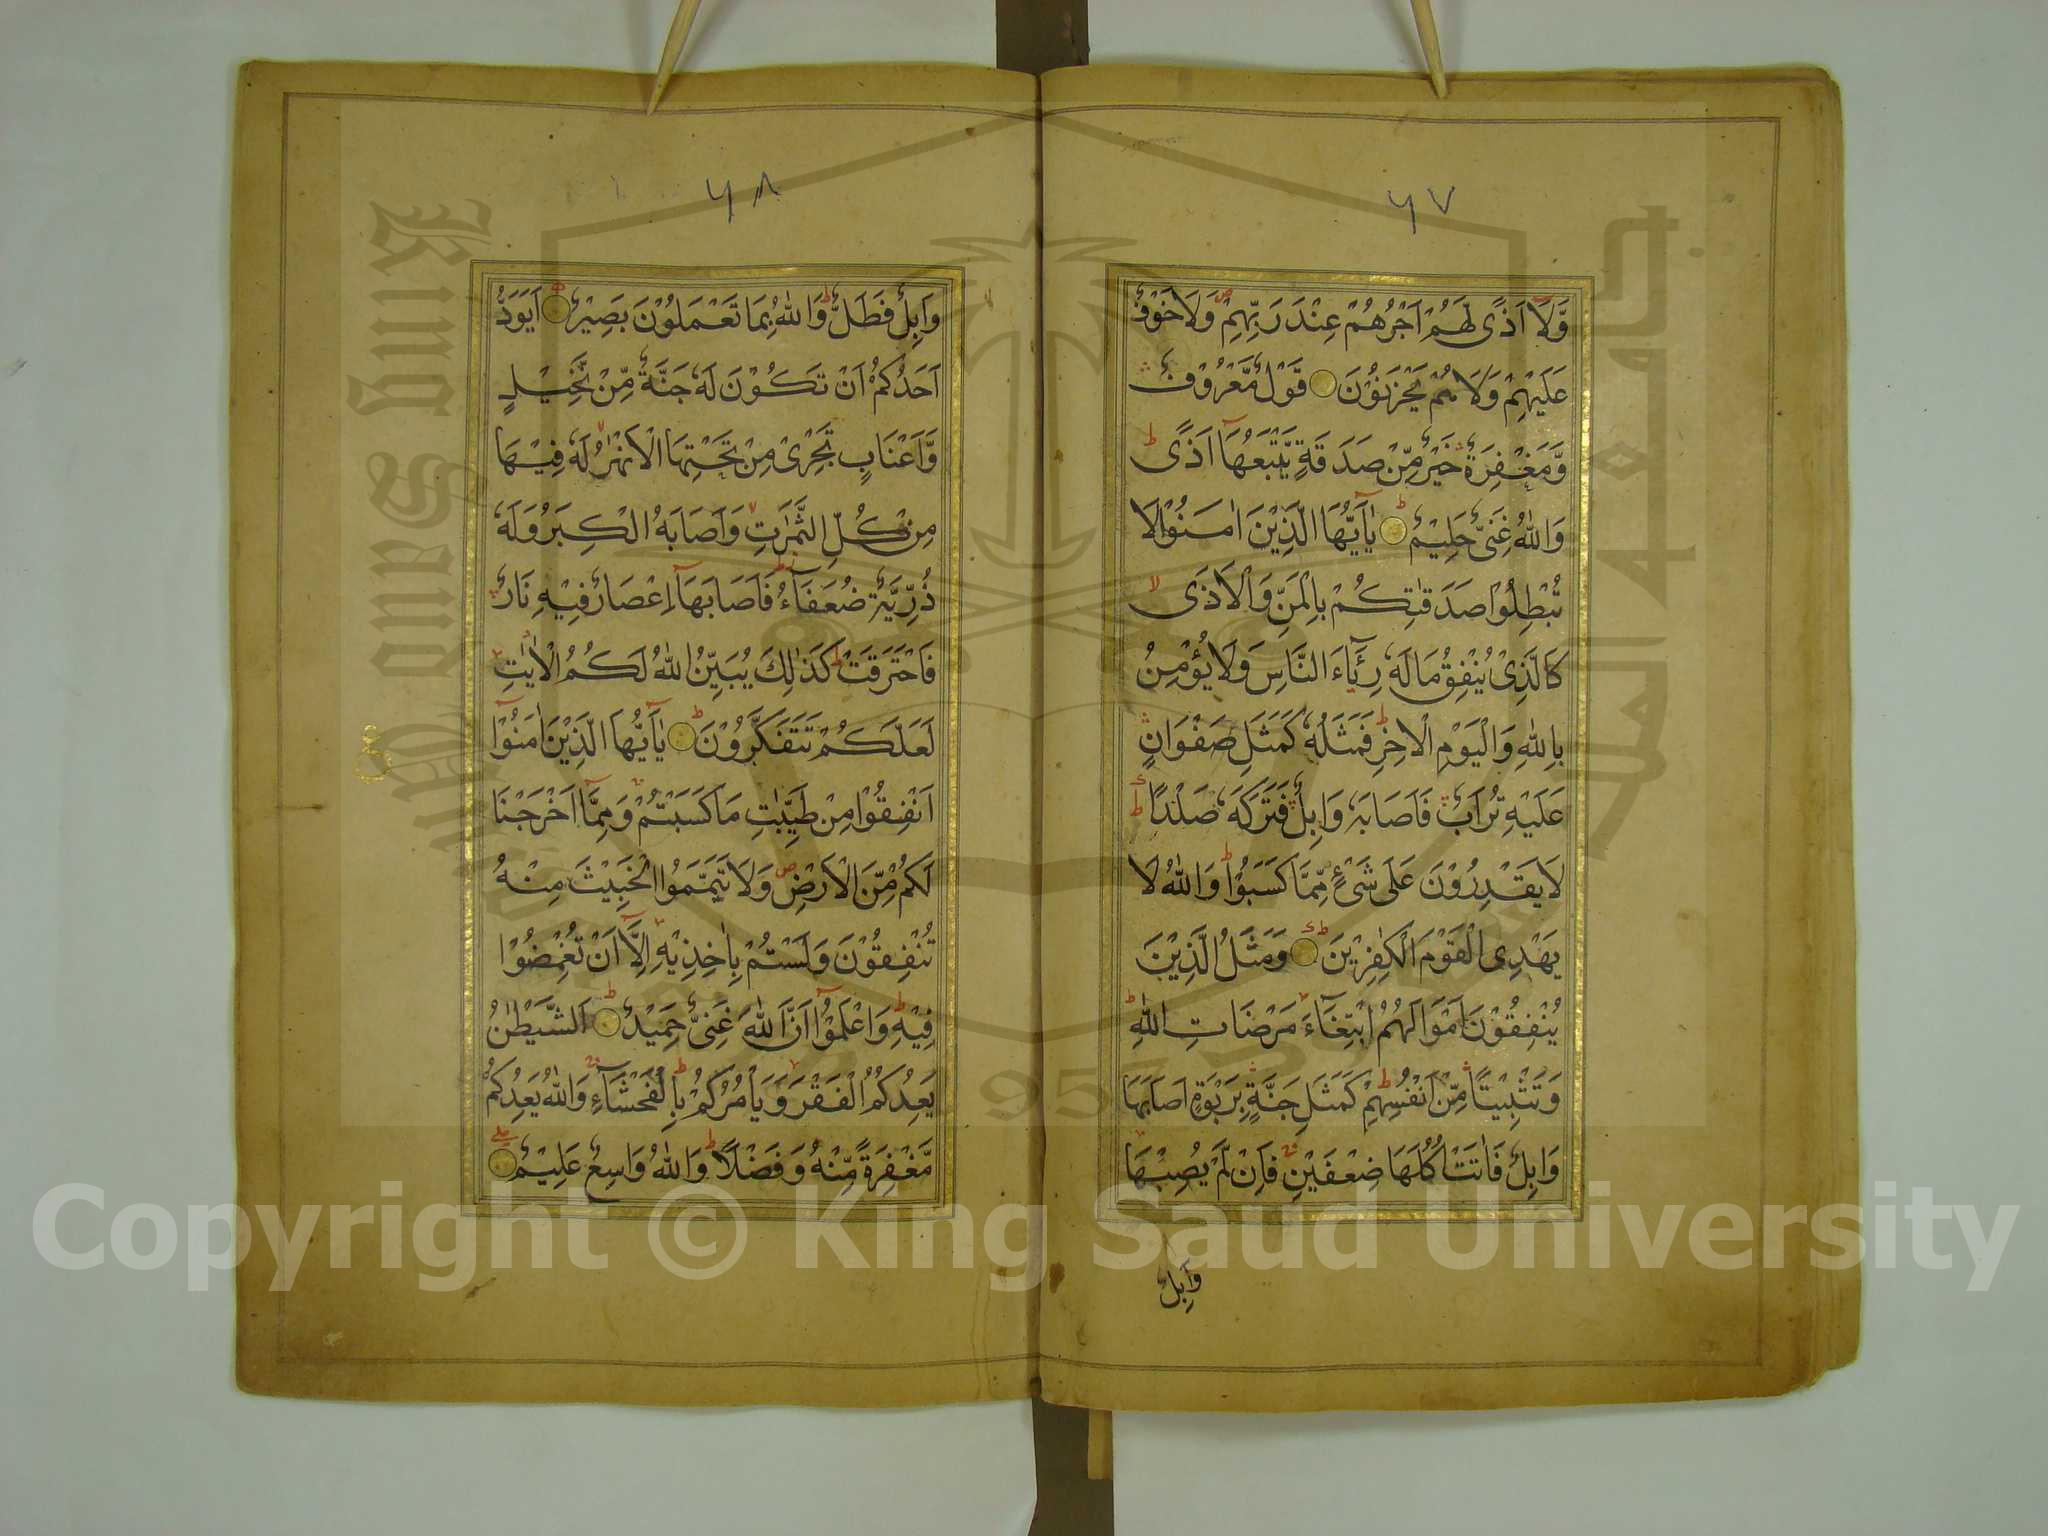 ۶۷
وَّلَآ اَذًى لَّهُمْ اَجْرُهُمْ عِنْدَ رَبِّهِمْ وَلَا خَوْفٌ
عَلَيْهِمْ وَلَا هُمْ يَحْزَنُوْنَ قَوْلٌ مَّعْرُوْفٌ
وَّمَغْفِرَةٌ خَيْرٌ مِّنْ صَدَقَةٍ يَّتْبَعُهَآ اَذًى
وَاللّٰهُ غَنِيٌّ حَلِيْمٌ يٰٓاَيُّهَا الَّذِيْنَ اٰمَنُوْا لَا
تُبْطِلُوْا صَدَقٰتِكُمْ بِالْمَنِّ وَالْاَذٰى
كَالَّذِيْ يُنْفِقُ مَالَهٗ رِئَآءَ النَّاسِ وَلَا يُؤْمِنُ
بِاللّٰهِ وَالْيَوْمِ الْاٰخِرِ فَمَثَلُهٗ كَمَثَلِ صَفْوَانٍ
عَلَيْهِ تُرَابٌ فَاَصَابَهٗ وَابِلٌ فَتَرَكَهٗ صَلْدًا
لَا يَقْدِرُوْنَ عَلٰى شَيْءٍ مِّمَّا كَسَبُوْا وَاللّٰهُ لَا
يَهْدِى الْقَوْمَ الْكٰفِرِيْنَ وَمَثَلُ الَّذِيْنَ
يُنْفِقُوْنَ اَمْوَالَهُمُ ابْتِغَآءَ مَرْضَاتِ اللّٰهِ
وَتَثْبِيْتًا مِّنْ اَنْفُسِهِمْ كَمَثَلِ جَنَّةٍ بِرَبْوَةٍ اَصَابَهَا
وَابِلٌ فَاٰتَتْ اُكُلَهَا ضِعْفَيْنِ فَاِنْ لَّمْ يُصِبْهَا
وَابِلٌ
۶۸
وَابِلٌ فَطَلٌّ وَاللّٰهُ بِمَا تَعْمَلُوْنَ بَصِيْرٌ اَيَوَدُّ
اَحَدُكُمْ اَنْ تَكُوْنَ لَهٗ جَنَّةٌ مِّنْ نَّخِيْلٍ
وَّاَعْنَابٍ تَجْرِيْ مِنْ تَحْتِهَا الْاَنْهٰرُ لَهٗ فِيْهَا
مِنْ كُلِّ الثَّمَرٰتِ وَاَصَابَهُ الْكِبَرُ وَلَهٗ
ذُرِّيَّةٌ ضُعَفَآءُ فَاَصَابَهَآ اِعْصَارٌ فِيْهِ نَارٌ
فَاحْتَرَقَتْ كَذٰلِكَ يُبَيِّنُ اللّٰهُ لَكُمُ الْاٰيٰتِ
لَعَلَّكُمْ تَتَفَكَّرُوْنَ يٰٓاَيُّهَا الَّذِيْنَ اٰمَنُوْٓا
اَنْفِقُوْا مِنْ طَيِّبٰتِ مَا كَسَبْتُمْ وَمِمَّآ اَخْرَجْنَا
لَكُمْ مِّنَ الْاَرْضِ وَلَا تَيَمَّمُوا الْخَبِيْثَ مِنْهُ
تُنْفِقُوْنَ وَلَسْتُمْ بِاٰخِذِيْهِ اِلَّآ اَنْ تُغْمِضُوْا
فِيْهِ وَاعْلَمُوْٓا اَنَّ اللّٰهَ غَنِيٌّ حَمِيْدٌ اَلشَّيْطٰنُ
يَعِدُكُمُ الْفَقْرَ وَيَاْمُرُكُمْ بِالْفَحْشَآءِ وَاللّٰهُ يَعِدُكُمْ
مَّغْفِرَةً مِّنْهُ وَفَضْلًا وَاللّٰهُ وَاسِعٌ عَلِيْمٌ
Copyright © King Saud University